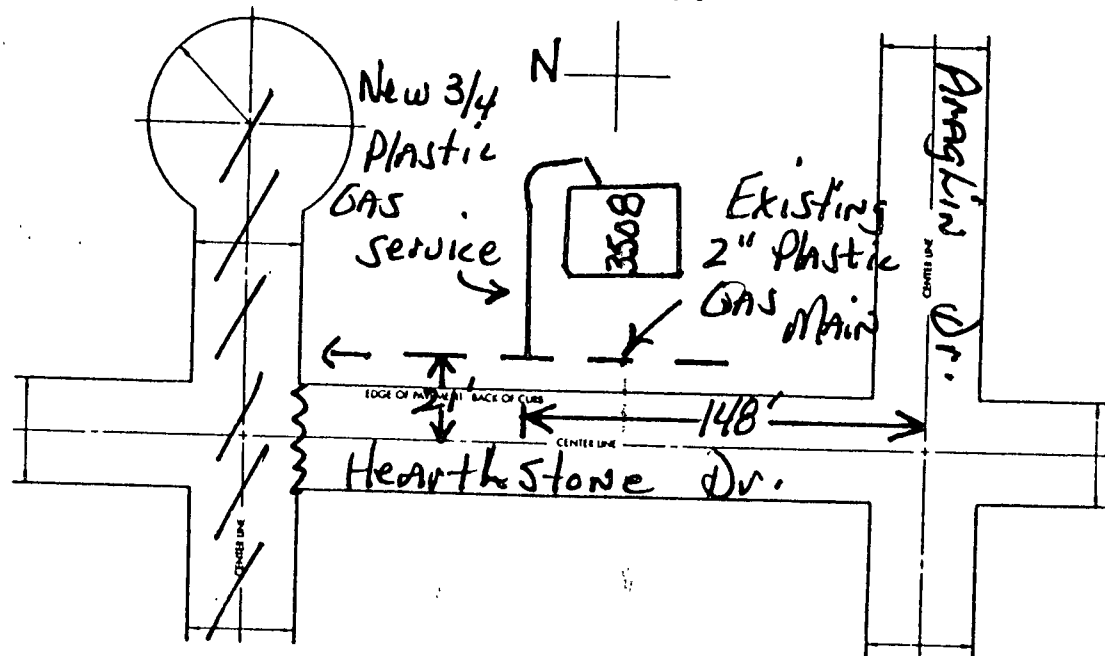 N
New 3/4
Plastic
GAS
Service
3508
Existing
2" Plastic
GAS
Main
CENTER LINE
Dr.
EDGE OF PAVEMENT BACK OF CURB
21'
148'
CENTER LINE
HearthStone Dr.
CENTER LINE